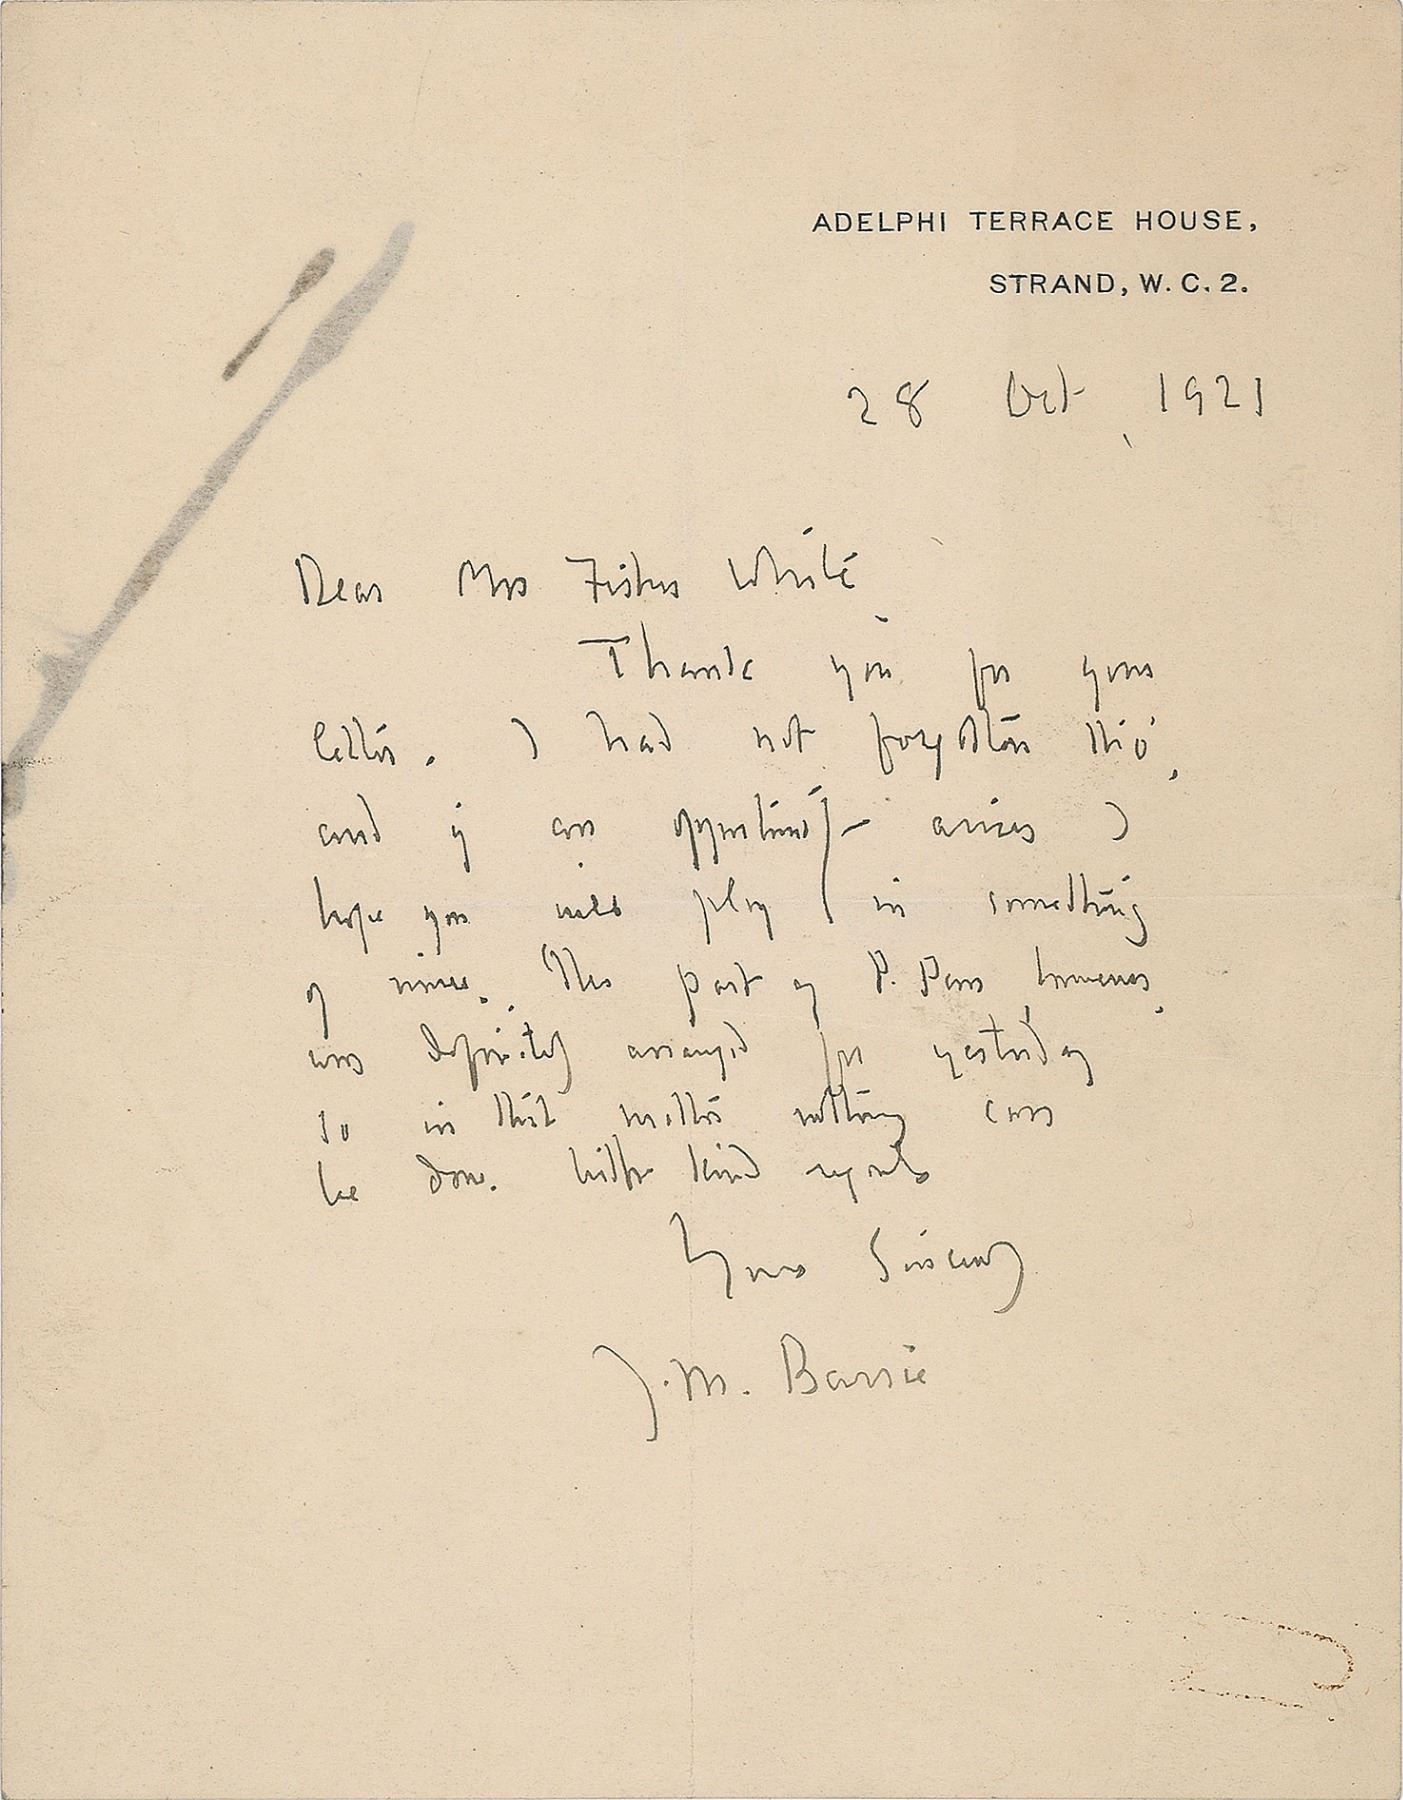 ADELPHI TERRACE HOUSE,
STRAND, W.C.2.
28 Oct, 1921
Dear Mrs Fisher White,
Thank you for your
letter. I had not forgotten this,
and if an opportunity arises I
hope you will play in something
of mine. The part of P. Pan however,
was definitely arranged for yesterday
so in that matter nothing can
be done. With kind regards
Yours Sincerely
J.M. Barrie